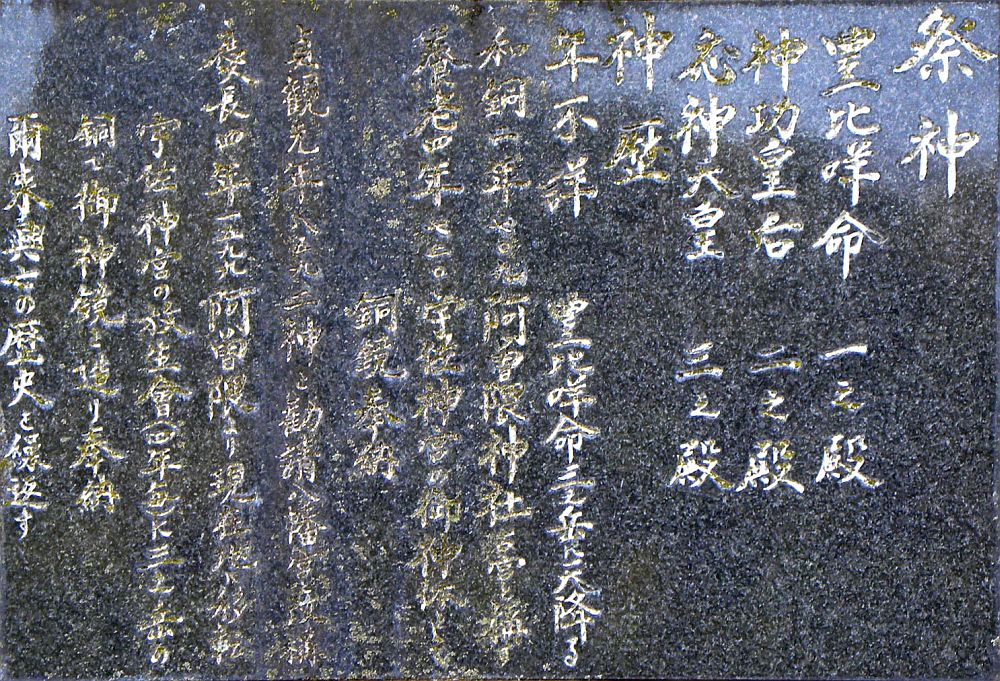 祭神
豊比咩命 一之殿
神功皇后 二之殿
応神天皇 三之殿
神歴
年不詳 豊比咩命三之岳に天降る
和銅二年 七〇九 阿曽隈神社を営
養老四年 七二〇 宇佐神宮の御神体として
銅鏡奉納
貞観元年 八五九 二神を勧請八幡宮
慶長四年 一五九九 阿曽隈より現在地へ移転
宇佐神宮の放生會四年毎に三之岳の
銅で御神鏡を造り奉納
爾来興亡の歴史を繰返す